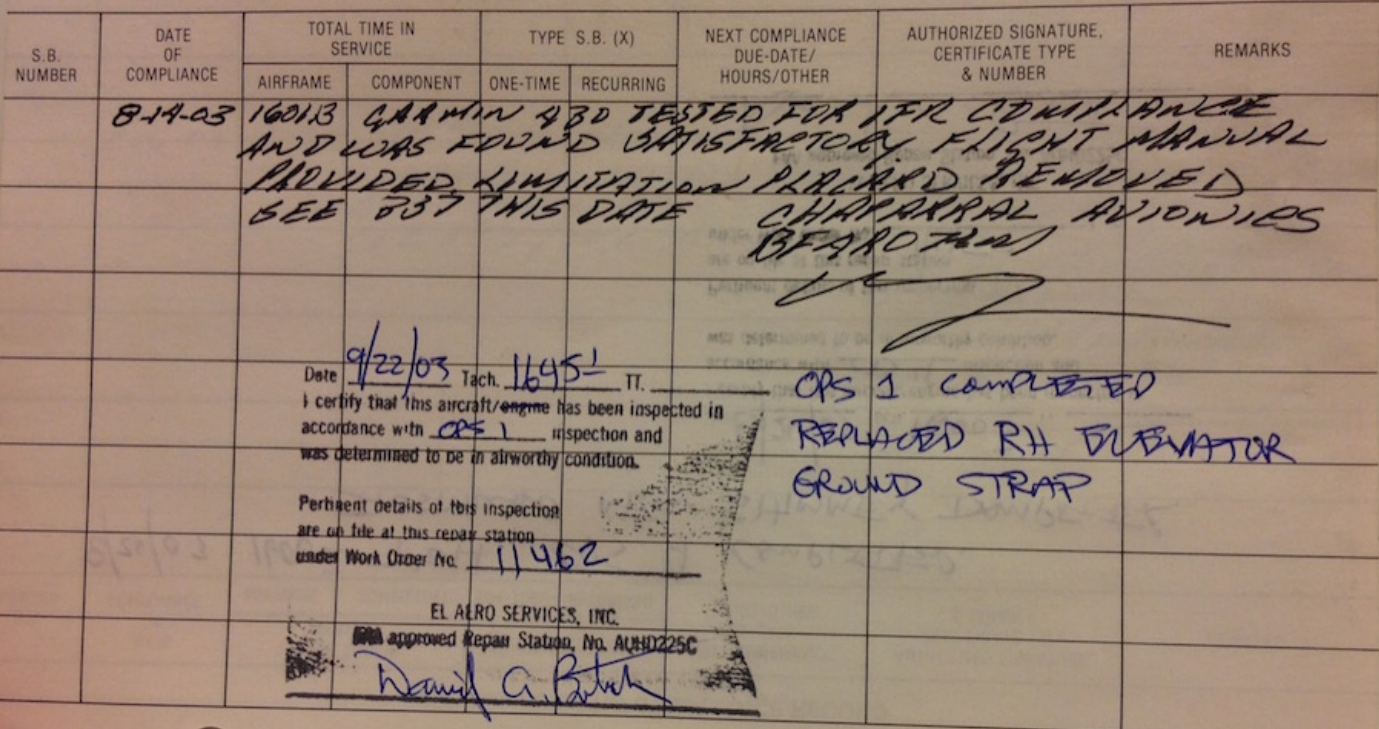 S.B. NUMBER
DATE OF COMPLIANCE
TOTAL TIME IN SERVICE
AIRFRAME
COMPONENT
TYPE S.B. (X)
ONE-TIME
RECURRING
NEXT COMPLIANCE DUE-DATE/ HOURS/OTHER
AUTHORIZED SIGNATURE, CERTIFICATE TYPE & NUMBER
REMARKS
8-14-03 1601.3 GARMIN 430 TESTED FOR IFR COMPLIANCE
AND WAS FOUND SATISFACTORY FLIGHT MANUAL
PROVIDED. LIMITATION PLACARD REMOVED
SEE 337 THIS DATE CHAPARRAL AVIONICS
Date 9/22/03 Tach. 1645.1 TT.
I certify that this aircraft/engine has been inspected in
accordance with OPS 1 inspection and
was determined to be in airworthy condition.
Pertinent details of this inspection
are on file at this repair station
under Work Order No. 11462
EL AERO SERVICES, INC.
approved Repair Station, No. AUHD225C
David A.
OPS 1 COMPLETED
REPLACED RH ELEVATOR
GROUND STRAP